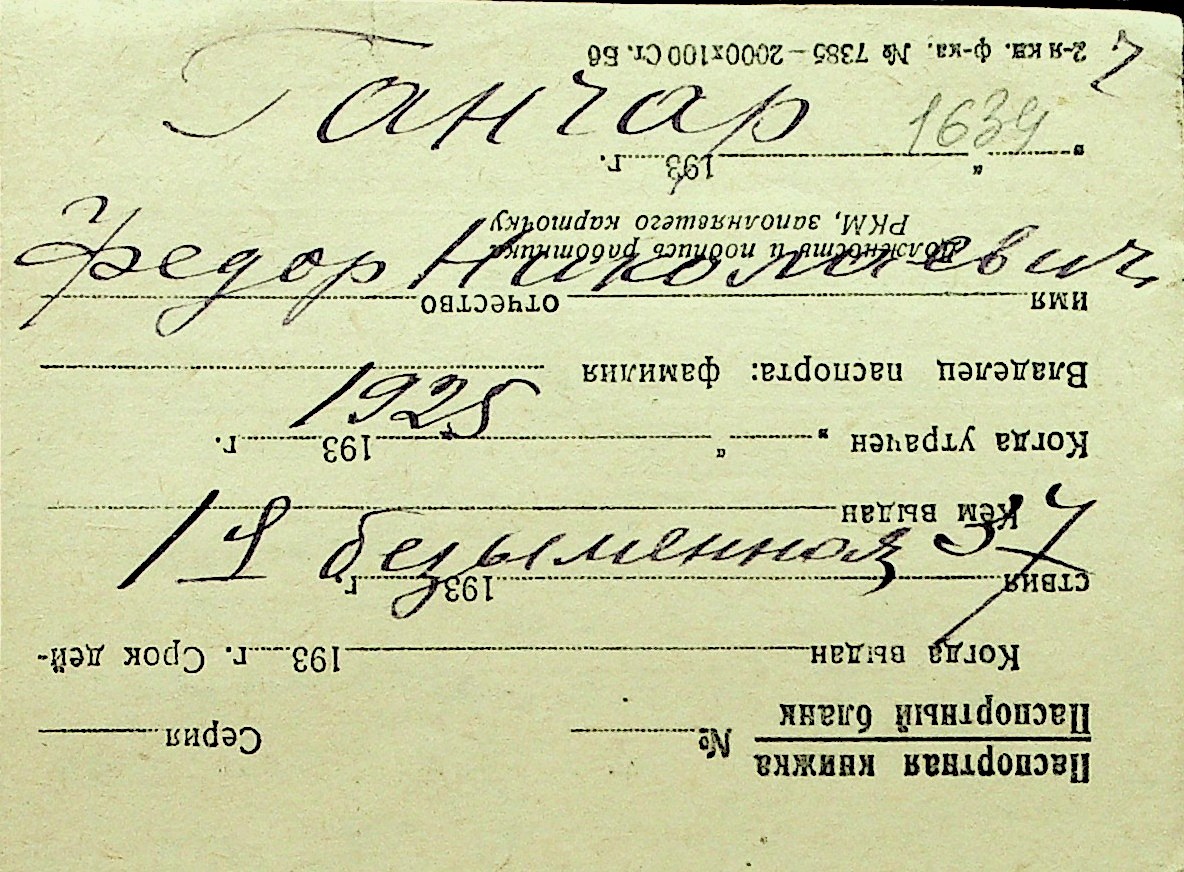 Ганчар 1639
Федор Николаевич
1925
безыменная 37
Паспортная книжка
Паспортный бланк № Серия
Когда выдан 193 г. Срок дей-
ствия 193 г
Кем выдан
Когда утрачен „ “ 193 г.
Владелец паспорта: фамилия
имя отчество
Должность и подпись работника
РКМ, заполнявшего карточку
„ “ 193 г.
2-я кн. ф-ка. № 7385 — 2000х100 Ст. Бб